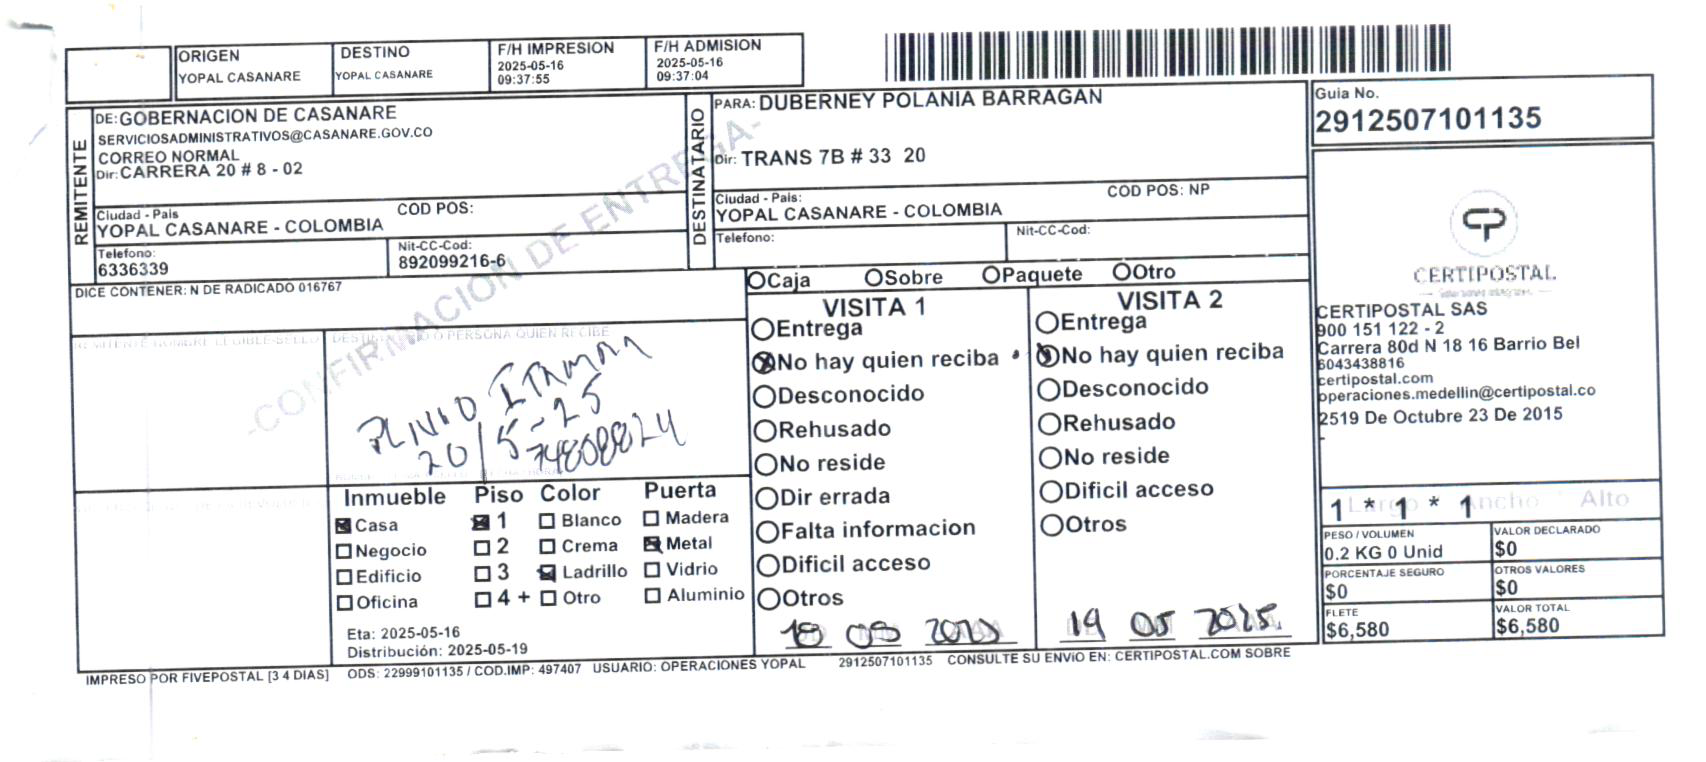 ORIGEN
YOPAL CASANARE
DESTINO
YOPAL CASANARE
F/H IMPRESION
2025-05-16
09:37:55
F/H ADMISION
2025-05-16
09:37:04
REMITENTE
DE: GOBERNACION DE CASANARE
SERVICIOSADMINISTRATIVOS@CASANARE.GOV.CO
CORREO NORMAL
Dir: CARRERA 20 # 8 - 02
Ciudad - Pais
COD POS:
YOPAL CASANARE - COLOMBIA
Telefono:
6336339
Nit-CC-Cod:
892099216-6
DESTINATARIO
PARA: DUBERNEY POLANIA BARRAGAN
Dir: TRANS 7B # 33 20
Ciudad - Pais:
COD POS: NP
YOPAL CASANARE - COLOMBIA
Telefono:
Nit-CC-Cod:
Guia No.
2912507101135
CERTIPOSTAL
CERTIPOSTAL SAS
900 151 122 - 2
Carrera 80d N 18 16 Barrio Bel
6043438816
certipostal.com
operaciones.medellin@certipostal.co
2519 De Octubre 23 De 2015
-
DICE CONTENER: N DE RADICADO 016767
-CONFIRMACION DE ENTREGA-
REMITENTE NOMBRE LEGIBLE-SELLO
PERSONA QUIEN RECIBE
PLINIO
20/5-25
74808824
Caja
Sobre
Paquete
Otro
VISITA 1
Entrega
No hay quien reciba
Desconocido
Rehusado
No reside
Dir errada
Falta informacion
Dificil acceso
Otros
VISITA 2
Entrega
No hay quien reciba
Desconocido
Rehusado
No reside
Dificil acceso
Otros
19 05 2025.
Inmueble
Casa
Negocio
Edificio
Oficina
Piso
1
2
3
4 +
Color
Blanco
Crema
Ladrillo
Otro
Puerta
Madera
Metal
Vidrio
Aluminio
Eta: 2025-05-16
Distribución: 2025-05-19
Largo Ancho Alto
1 * 1 * 1
PESO / VOLUMEN
0.2 KG 0 Unid
VALOR DECLARADO
$0
PORCENTAJE SEGURO
$0
OTROS VALORES
$0
FLETE
$6,580
VALOR TOTAL
$6,580
IMPRESO POR FIVEPOSTAL [3 4 DIAS] ODS: 22999101135 / COD.IMP: 497407 USUARIO: OPERACIONES YOPAL 2912507101135 CONSULTE SU ENVIO EN: CERTIPOSTAL.COM SOBRE